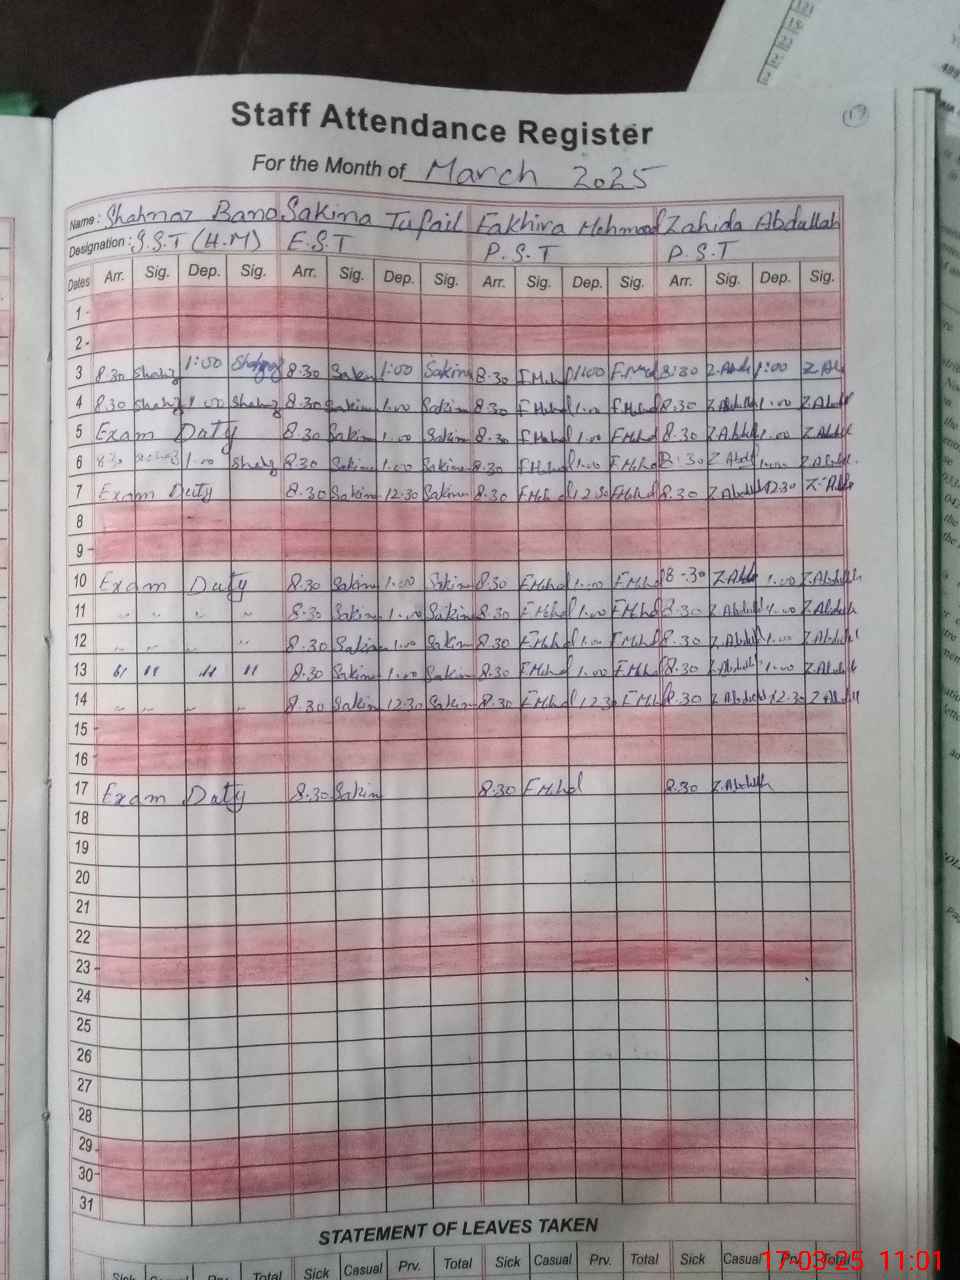 17
Staff Attendance Register
For the Month of March 2025
Name: Shahnaz Bano Sakina Tufail Fakhira Mehmood Zahida Abdullah
Designation: S.S.T (H.M) E.S.T P.S.T P.S.T
Dates Arr. Sig. Dep. Sig. Arr. Sig. Dep. Sig. Arr. Sig. Dep. Sig. Arr. Sig. Dep. Sig.
1
2
3 8.30 Shahz 1:00 8.30 Sakin 1:00 Sakina 8.30 F.Mehd 1:00 8:30 Z.Abd 1:00 Z Abd
4 8.30 Shahz 1.00 Shahz 8.30 Sakin 1.00 Sakin 8.30 F.Mehd 1.00 F.Mehd 8.30 Z.Abdul 1.00 Z.Abdul
5 Exam Duty 8.30 Sakin 1.00 Sakin 8.30 F.Mehd 1.00 F.Mehd 8.30 Z.Abdul 1.00 Z.Abdul
6 8.30 1.00 Shahz 8.30 Sakin 1.00 Sakin 8.30 F.Mehd 1.00 F.Mehd 8:30 Z.Abd 1.00 Z.Abdul
7 Exam Duty 8.30 Sakin 12.30 Sakin 8.30 F.Mehd 12.30 F.Mehd 8.30 Z.Abdul 12.30
8
9
10 Exam Duty 8.30 Sakin 1.00 Sakin 8.30 F.Mehd 1.00 F.Mehd 8.30 Z.Abd 1.00 Z.Abdul
11 " " " " 8.30 Sakin 1.00 Sakin 8.30 F.Mehd 1.00 F.Mehd 8.30 Z.Abdul 1.00 Z.Abdul
12 " " " " 8.30 Sakin 1.00 Sakin 8.30 F.Mehd 1.00 F.Mehd 8.30 Z.Abdul 1.00 Z.Abdul
13 " " " " 8.30 Sakin 1.00 Sakin 8.30 F.Mehd 1.00 F.Mehd 8.30 Z.Abdul 1.00 Z.Abdul
14 " " " " 8.30 Sakin 12.30 Sakin 8.30 F.Mehd 12.30 F.Mehd 8.30 Z.Abdul 12.30 Z.Abdul
15
16
17 Exam Duty 8.30 Sakin 8.30 F.Mehd 8.30 Z.Abdul
18
19
20
21
22
23
24
25
26
27
28
29
30
31
STATEMENT OF LEAVES TAKEN
Sick Casual Prv. Total Sick Casual Prv. Total Sick Casual Prv. Total Sick Casual Prv. Total
17-03-25 11:01